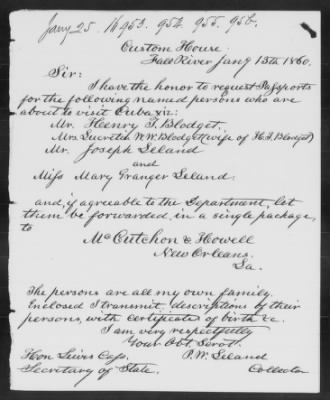 Jany 25. 16953. 954. 955. 956.
Custom House
Fall River Jany 13th 1860.
Sir:
I have the honor to request Passports
for the following named persons who are
about to visit Cuba viz:
Mr. Henry F. Blodget.
Mrs. Lucretia W. W. Blodget (wife of H. F. Blodget)
Mr. Joseph Leland
and
Miss Mary Granger Leland.
and, if agreeable to the Department, let
them be forwarded, in a single package,
to
McCutchon & Howell
New Orleans.
La.
The persons are all my own family.
Enclosed I transmit, descriptions of their
persons, with certificate of birth &c.
I am very respectfully
Your Obt. Servt.
Hon Lewis Cass, P. W. Leland
Secretary of State. Collector